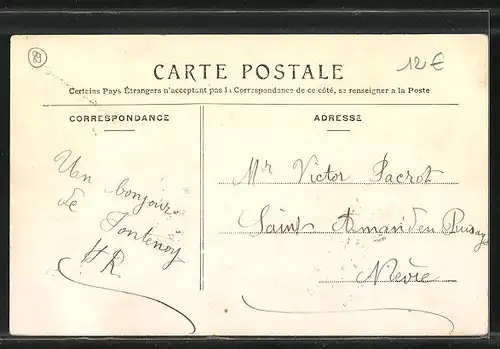 89
12€
CARTE POSTALE
Certains Pays Étrangers n'acceptant pas la Correspondance de ce côté, se renseigner a la Poste
CORRESPONDANCE
ADRESSE
Un bonjour
de Fontenoy
HR
Mr Victor Pacrot
Saint Amand en Puisaye
Nièvre